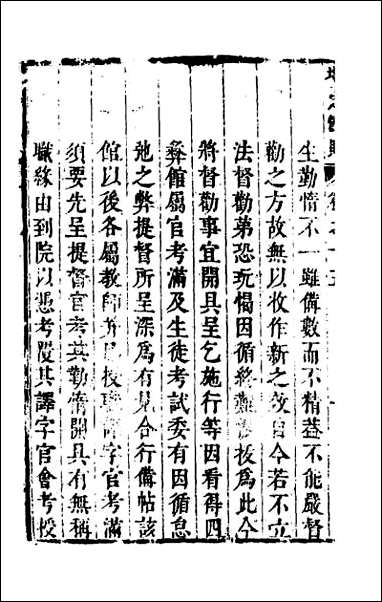 生勤惰不一雖備數而不精蓋不能嚴督
勸之方故無以收作新之效自今若不立
法督勸第恐玩愒因循終難拔為此今
將督勸事宜開具呈乞施行等因看得四
彝館屬官考滿及生徒考試委有因循怠
弛之弊提督所呈深為有見合行備帖該
館以後各屬教師并授職譯字官考滿
須要先呈提督官考其勤惰開具有無稱
職緣由到院以憑考覈其譯字官會考授